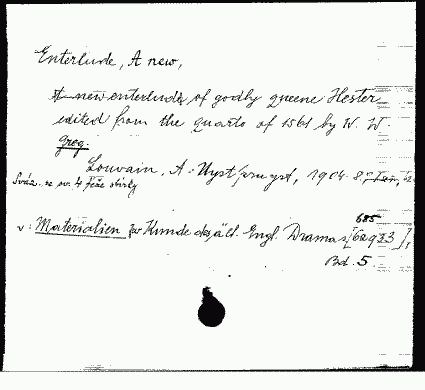 Enterlude, A new,
A new enterlude of godly queene Hester
edited from the quarto of 1561 by W. W.
Greg.
Louvain, A. Uystpruyst, 1904. 8°
Sváz. se sv. 4
685
v: Materialien zur Kunde des ält. Engl. Dramas [62933],
Bd. 5.